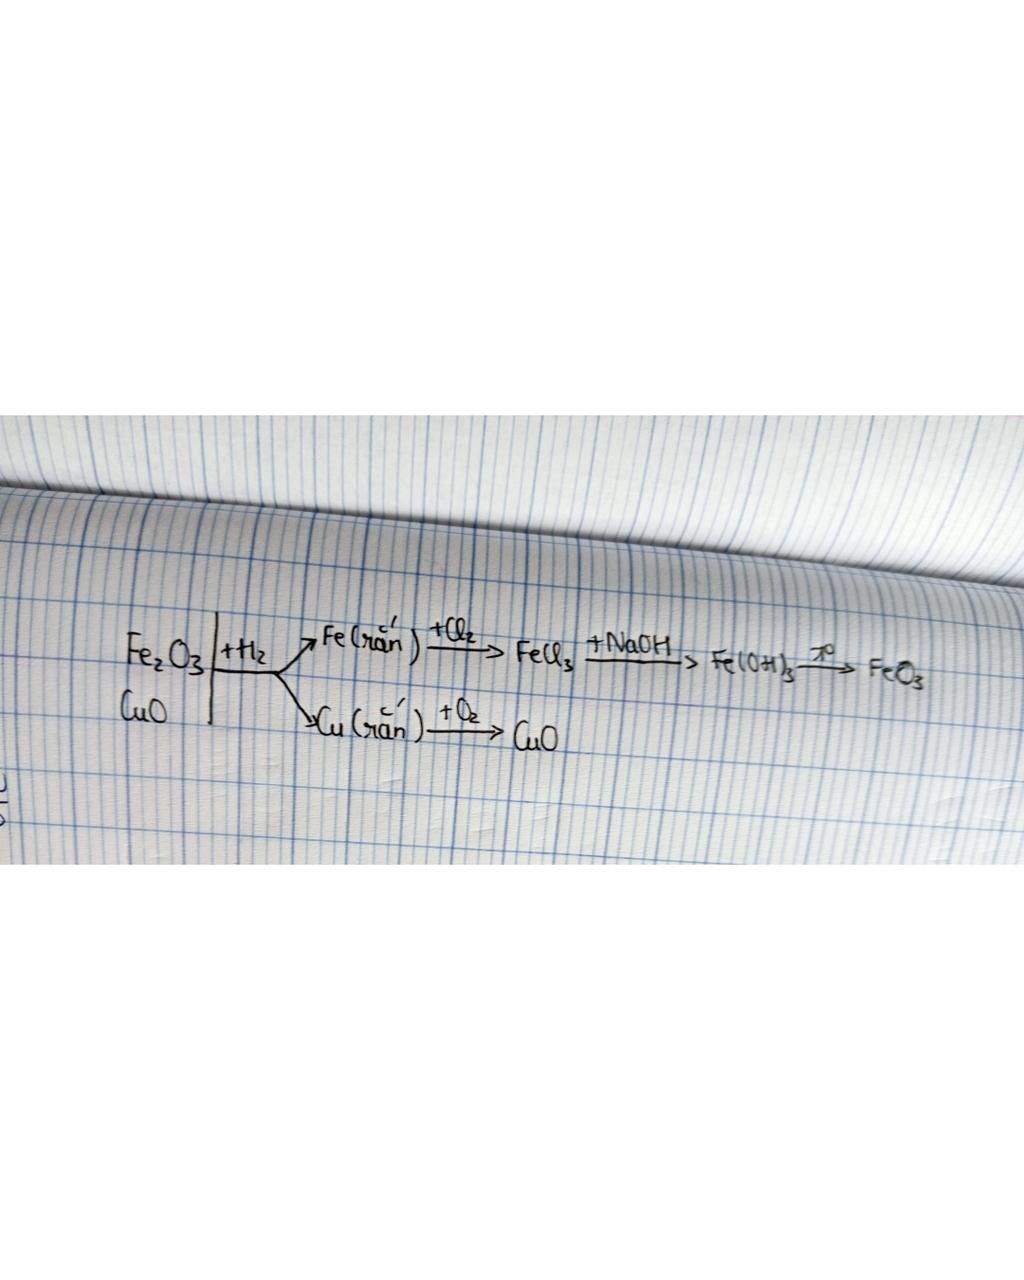 Fe₂O₃ +H₂ Fe (rắn) +Cl₂ FeCl₃ +NaOH Fe(OH)₃ t° FeO₃
CuO Cu (rắn) +O₂ CuO